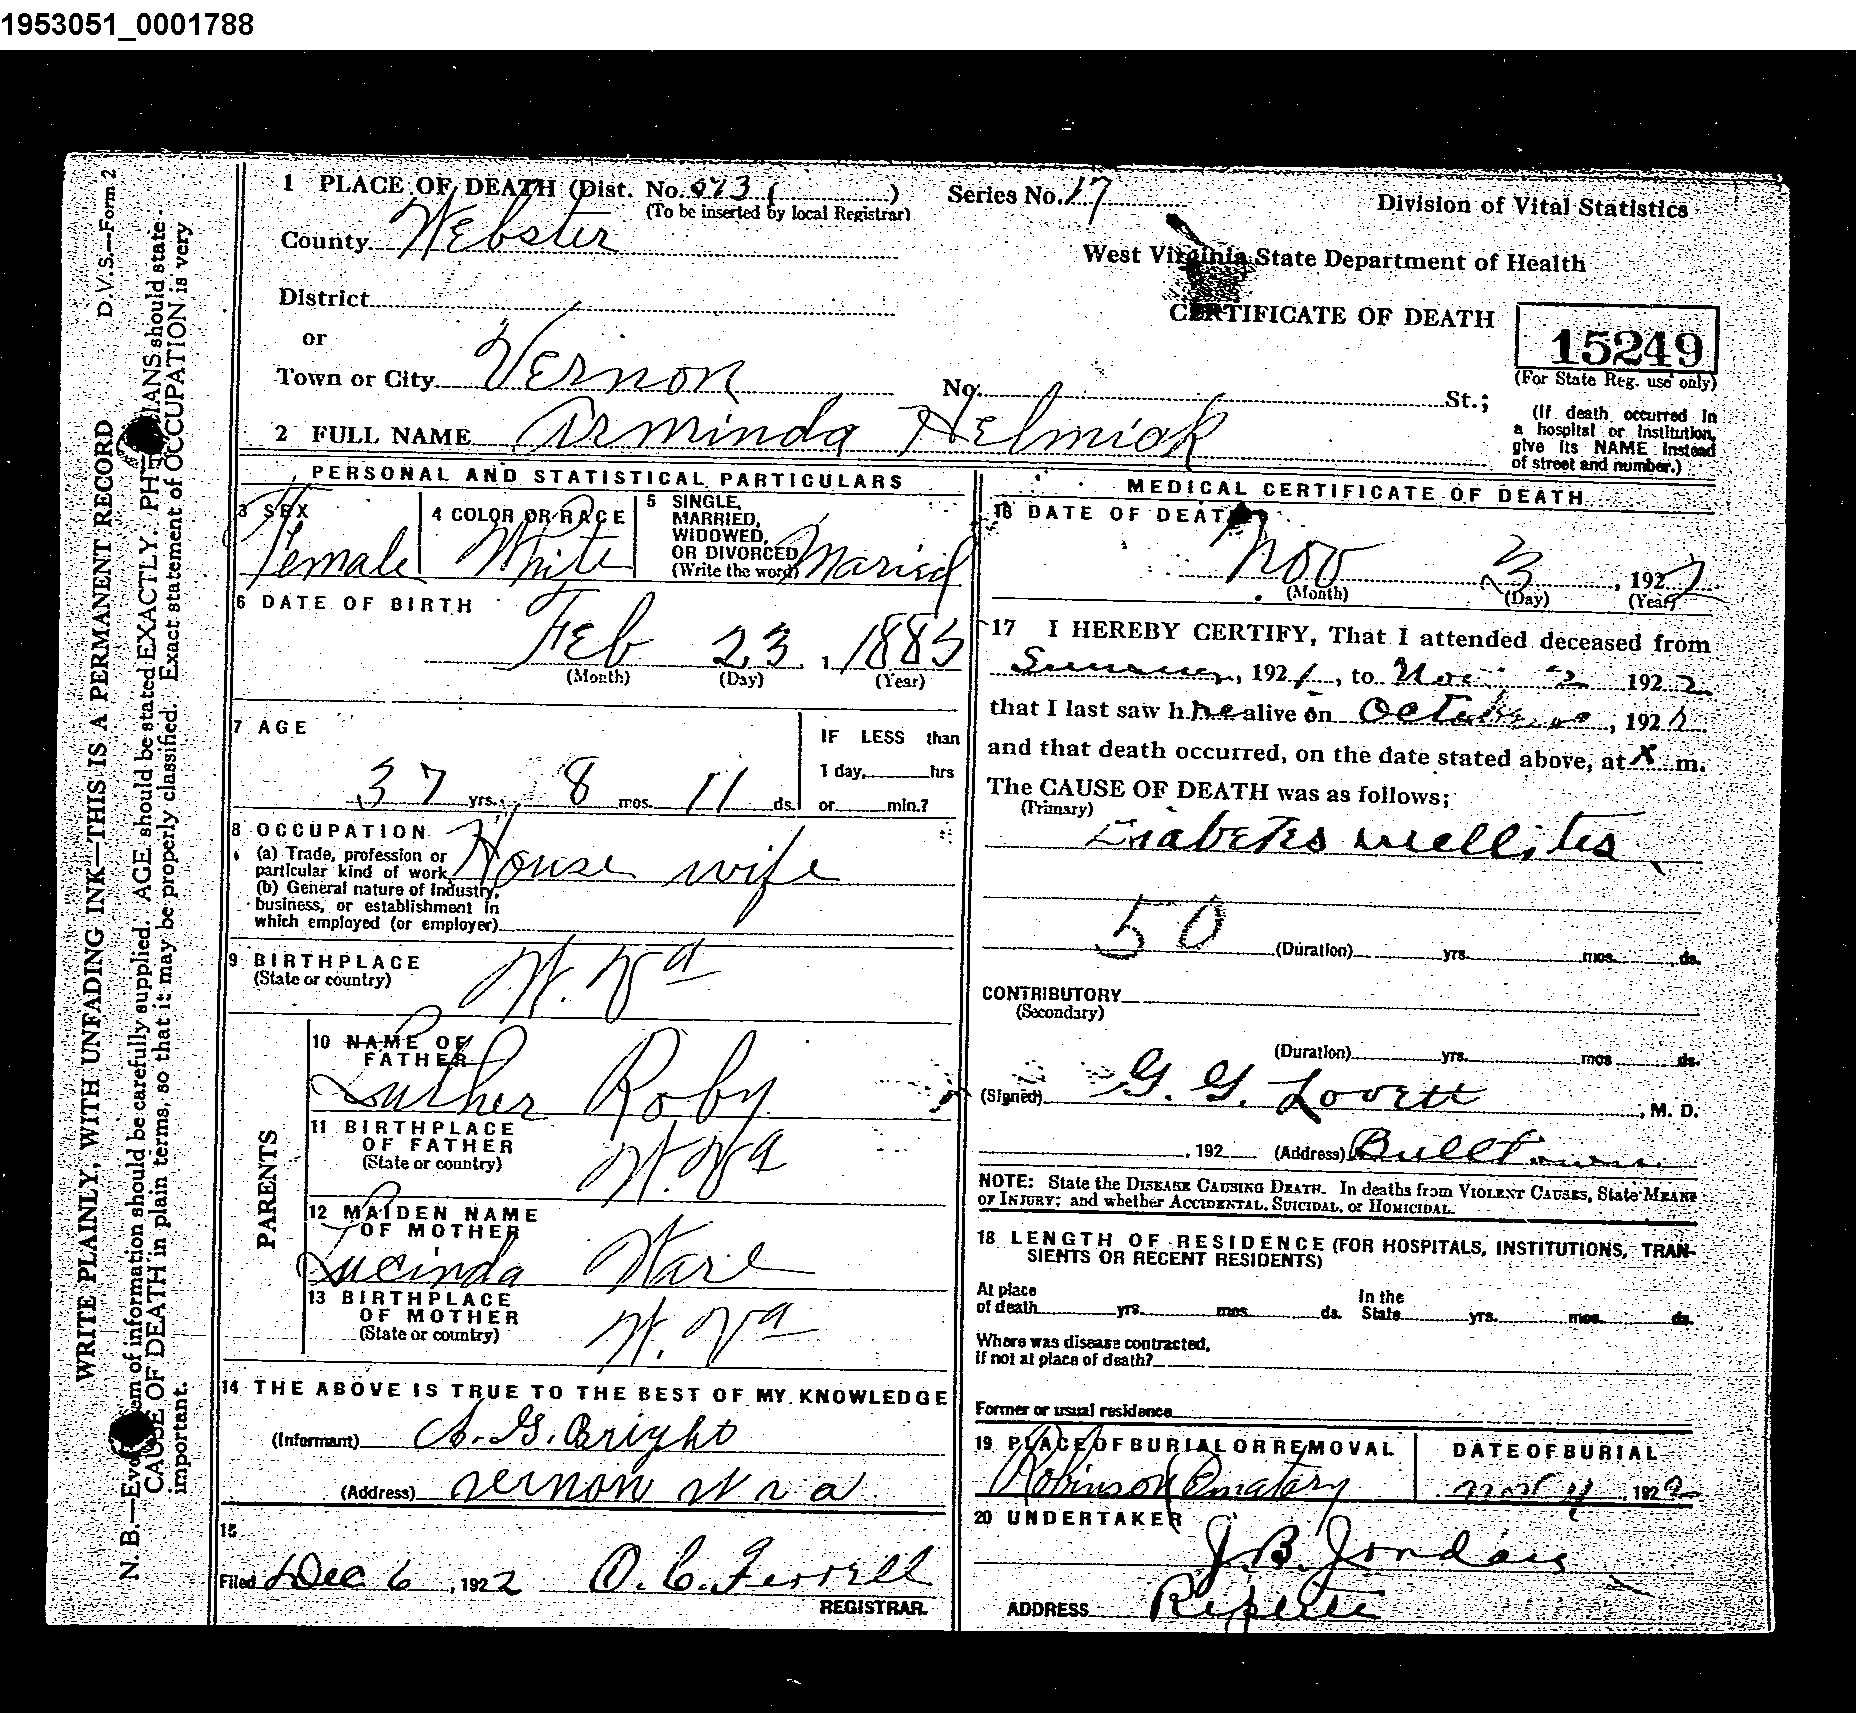 1953051_0001788
D.V.S.—Form 2
WRITE PLAINLY, WITH UNFADING INK—THIS IS A PERMANENT RECORD
N. B.—Every item of information should be carefully supplied. AGE should be stated EXACTLY. PHYSICIANS should state
CAUSE OF DEATH in plain terms, so that it may be properly classified. Exact statement of OCCUPATION is very
important.
1 PLACE OF DEATH (Dist. No. 5731 ) Series No. 17
(To be inserted by local Registrar)
Division of Vital Statistics
County Webster
West Virginia State Department of Health
District
CERTIFICATE OF DEATH
15249
(For State Reg. use only)
or
Town or City Vernon No. St.;
(If death occurred in
a hospital or institution,
give its NAME instead
of street and number.)
2 FULL NAME Arminda Helmick
PERSONAL AND STATISTICAL PARTICULARS
3 SEX
Female
4 COLOR OR RACE
White
5 SINGLE,
MARRIED,
WIDOWED,
OR DIVORCED
(Write the word) Maried
6 DATE OF BIRTH
Feb 23, 1885
(Month) (Day) (Year)
7 AGE
37 yrs. 8 mos. 11 ds.
IF LESS than
1 day, hrs
or min.?
8 OCCUPATION
(a) Trade, profession or
particular kind of work House wife
(b) General nature of industry,
business, or establishment in
which employed (or employer)
9 BIRTHPLACE
(State or country) W. Va
PARENTS
10 NAME OF
FATHER
Luther Roby
11 BIRTHPLACE
OF FATHER
(State or country) W. Va
12 MAIDEN NAME
OF MOTHER
Lucinda Ware
13 BIRTHPLACE
OF MOTHER
(State or country) W. Va
14 THE ABOVE IS TRUE TO THE BEST OF MY KNOWLEDGE
(Informant) A. G. Bright
(Address) Vernon W va
15
Filed Dec 6, 1922 O. C. Ferrell
REGISTRAR
MEDICAL CERTIFICATE OF DEATH
16 DATE OF DEATH
Nov 3, 1922
(Month) (Day) (Year)
17 I HEREBY CERTIFY, That I attended deceased from
Summer, 1921, to Nov 2 1922
that I last saw h alive on October, 192
and that death occurred, on the date stated above, at X m.
The CAUSE OF DEATH was as follows:
(Primary)
Diabetes mellites
50 (Duration) yrs. mos. ds.
CONTRIBUTORY
(Secondary)
(Duration) yrs. mos ds.
(Signed) G. G. Lovett, M. D.
, 192 (Address) Bulltown
NOTE: State the DISEASE CAUSING DEATH. In deaths from VIOLENT CAUSES, State MEANS
OF INJURY; and whether ACCIDENTAL, SUICIDAL, or HOMICIDAL.
18 LENGTH OF RESIDENCE (FOR HOSPITALS, INSTITUTIONS, TRAN-
SIENTS OR RECENT RESIDENTS)
At place
of death yrs. mos. ds.
In the
State yrs. mos. ds.
Where was disease contracted,
if not at place of death?
Former or usual residence
19 PLACE OF BURIAL OR REMOVAL
Robinson Cematary
DATE OF BURIAL
Nov 4, 1922
20 UNDERTAKER
J. B. Jordan
ADDRESS